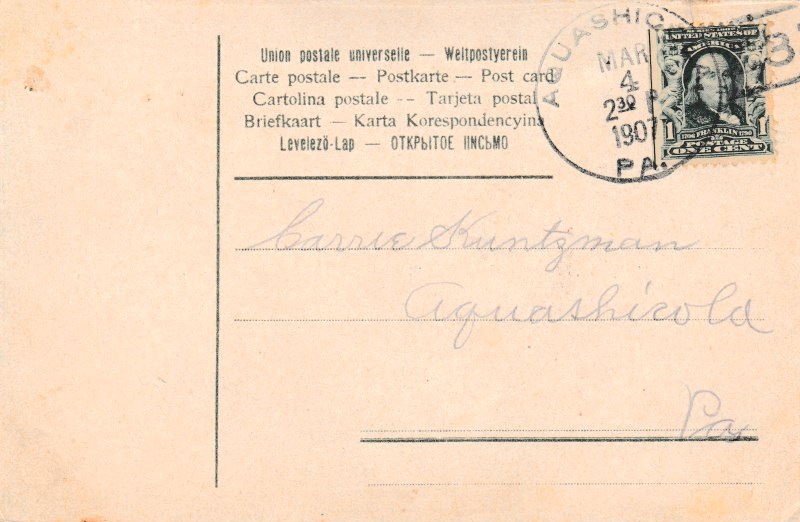 Union postale universelle — Weltpostverein
Carte postale — Postkarte — Post card
Cartolina postale -- Tarjeta postal
Briefkaart — Karta Korespondencyina
Levelező-Lap — ОТКРЫТОЕ ПИСЬМО
AQUASHIC
MAR
4
2 30 P
1907
PA.
UNITED STATES OF
AMERICA
1 1706 FRANKLIN 1790 1
POSTAGE
ONE CENT
Carrie Kuntzman
Aquashicola
Pa